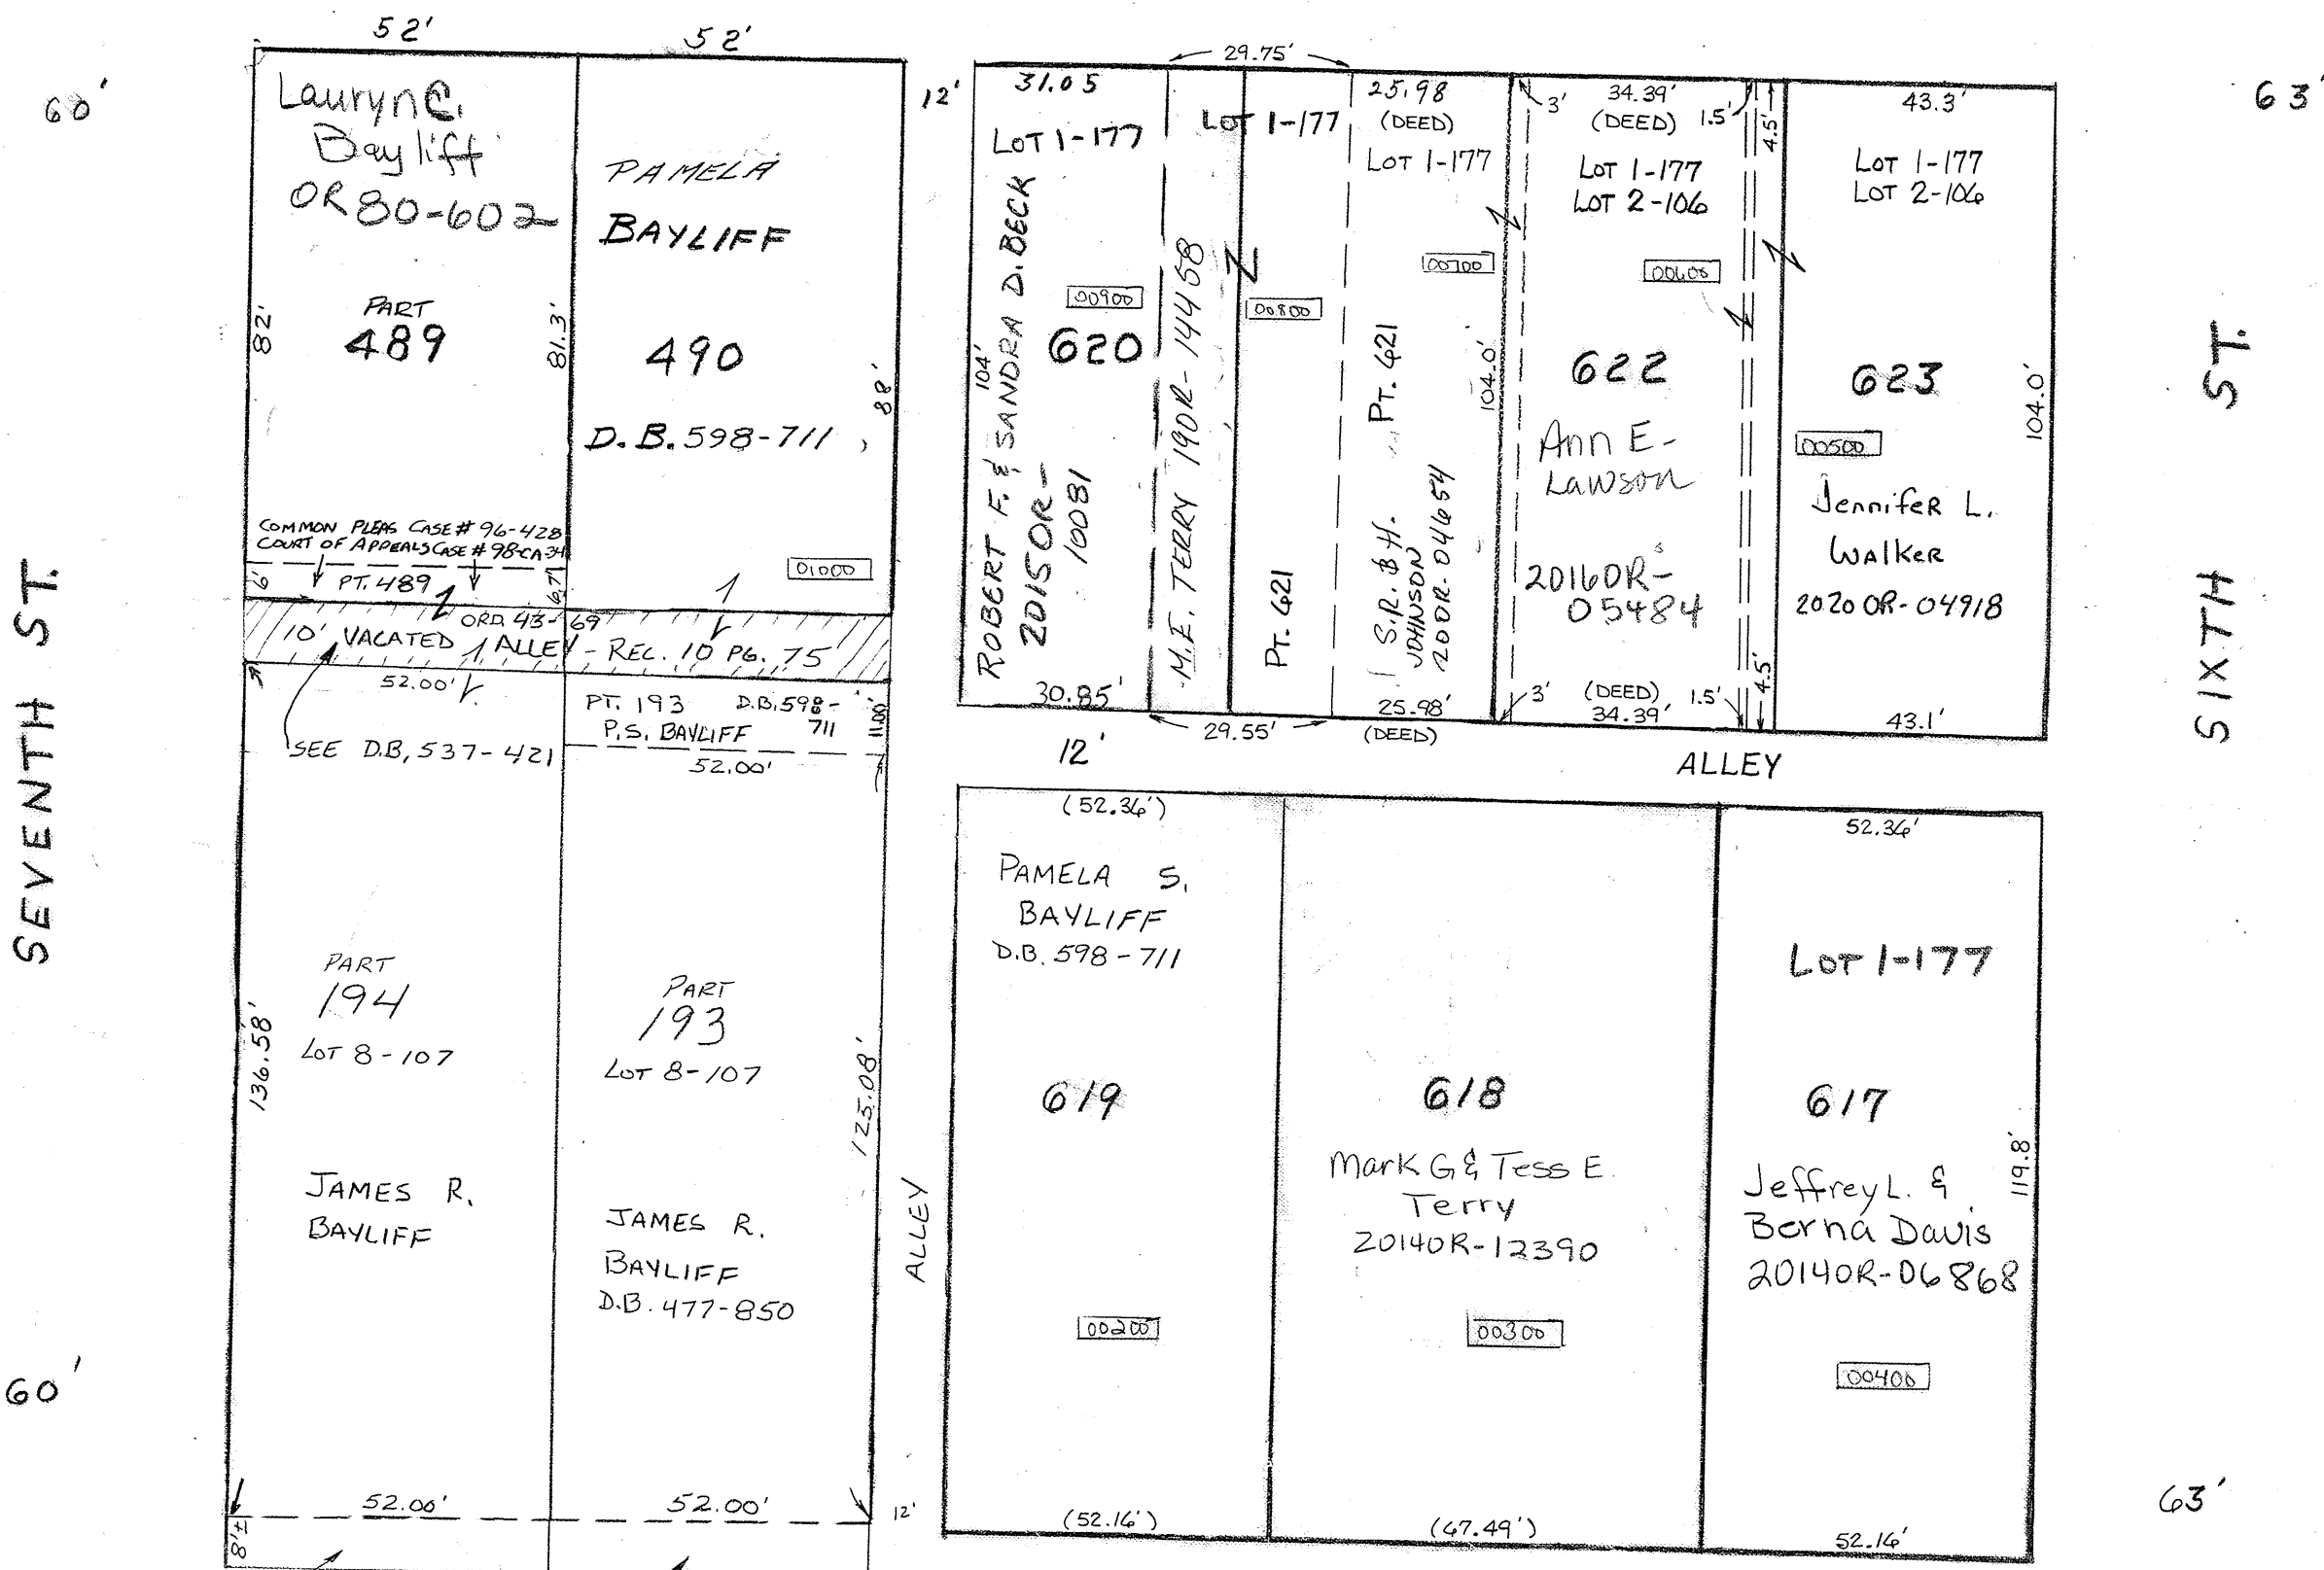 52'
52'
60'
Lauryn C.
Bayliff
OR 80-602
PAMELA
BAYLIFF
PART
489
490
D.B. 598-711
82'
81.3'
88'
COMMON PLEAS CASE # 96-428
COURT OF APPEALS CASE # 98-CA-34
6'
PT. 489
6.7'
01000
ORD. 43-69
10' VACATED ALLEY - REC. 10 PG. 75
52.00'
SEE D.B. 537-421
PT. 193 D.B. 598-
P.S. BAYLIFF 711
11.00'
52.00'
SEVENTH ST.
PART
194
LOT 8-107
136.58'
JAMES R.
BAYLIFF
PART
193
LOT 8-107
125.08'
JAMES R.
BAYLIFF
D.B. 477-850
52.00'
52.00'
8'±
60'
12'
12'
ALLEY
31.05
LOT 1-177
ROBERT F. & SANDRA D. BECK
2015OR-
10081
104'
00900
620
30.85'
29.75'
LOT 1-177
M.E. TERRY 190R-14458
00800
PT. 621
29.55'
25.98
(DEED)
LOT 1-177
00700
PT. 621
104.0'
S.R. & H.
JOHNSON
200R-04654
25.98'
(DEED)
3'
34.39'
(DEED)
1.5'
4.5'
LOT 1-177
LOT 2-106
00600
622
Ann E-
Lawson
2016OR-
05484
3'
(DEED)
34.39'
1.5'
4.5'
43.3'
LOT 1-177
LOT 2-106
623
104.0'
00500
Jennifer L.
Walker
2020 OR-04918
43.1'
63'
SIXTH ST.
12'
ALLEY
(52.36')
PAMELA S.
BAYLIFF
D.B. 598-711
619
00200
(52.16')
618
Mark G & Tess E.
Terry
2014OR-12390
00300
(67.49')
52.36'
LOT 1-177
617
119.8'
Jeffrey L. &
Berna Davis
2014OR-06868
00400
52.16'
63'